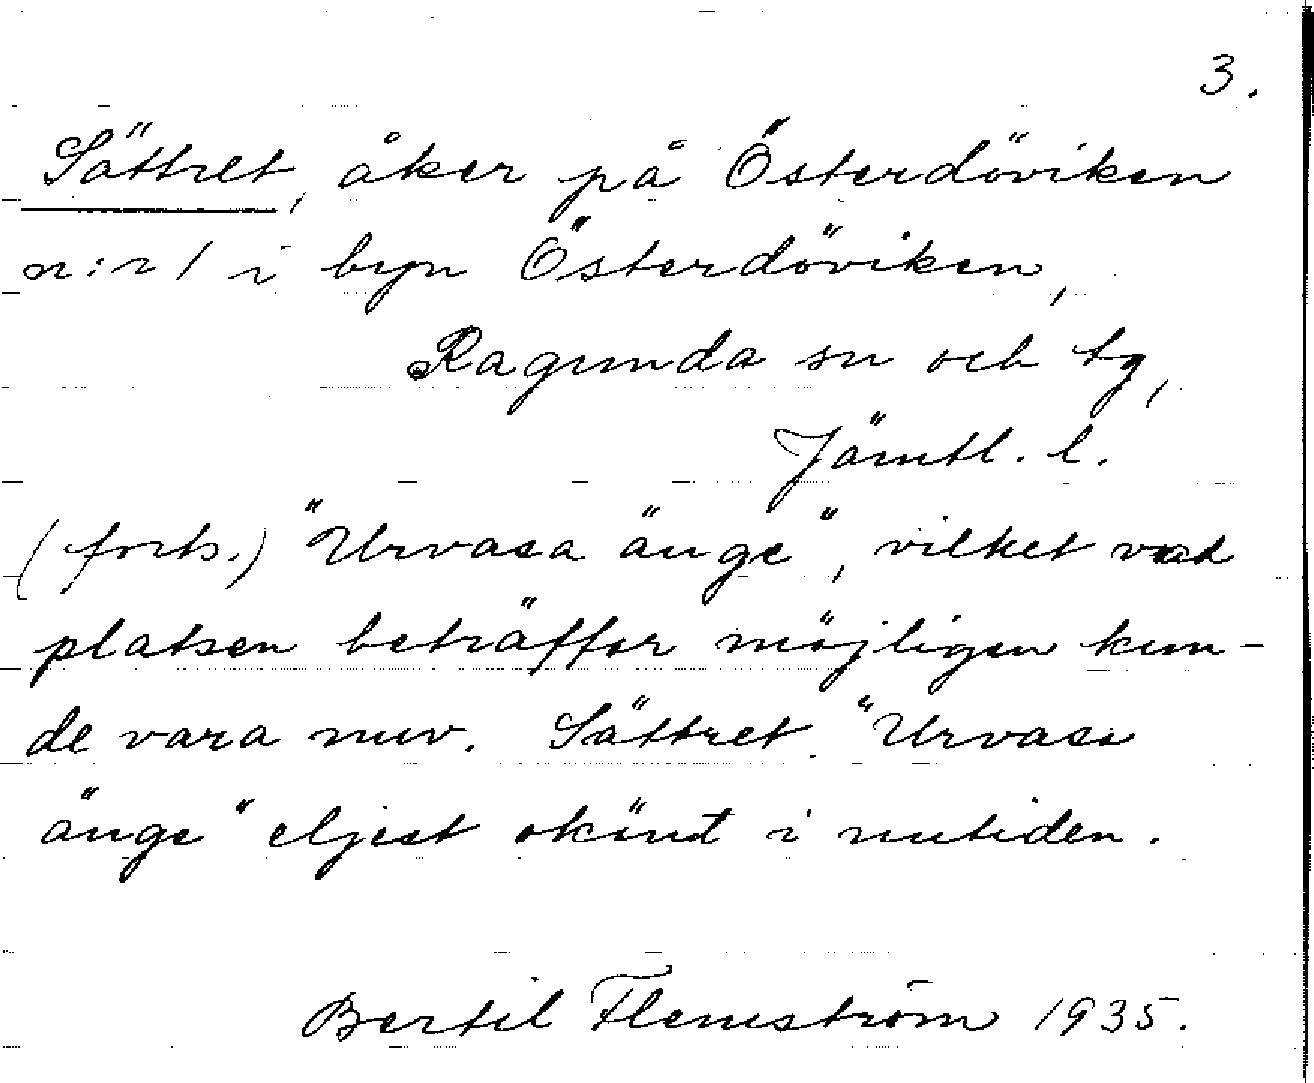 3.
Sättret, åker på Österdöviken
n:r 1 i byn Österdöviken,
Ragunda sn och tg,
Jämtl. l.
(forts.) "Urvasa änge", vilket vad
platsen beträffar möjligen kun-
de vara nuv. Sättret. "Urvasa
änge" eljest okänt i nutiden.
Bertil Flemström 1935.